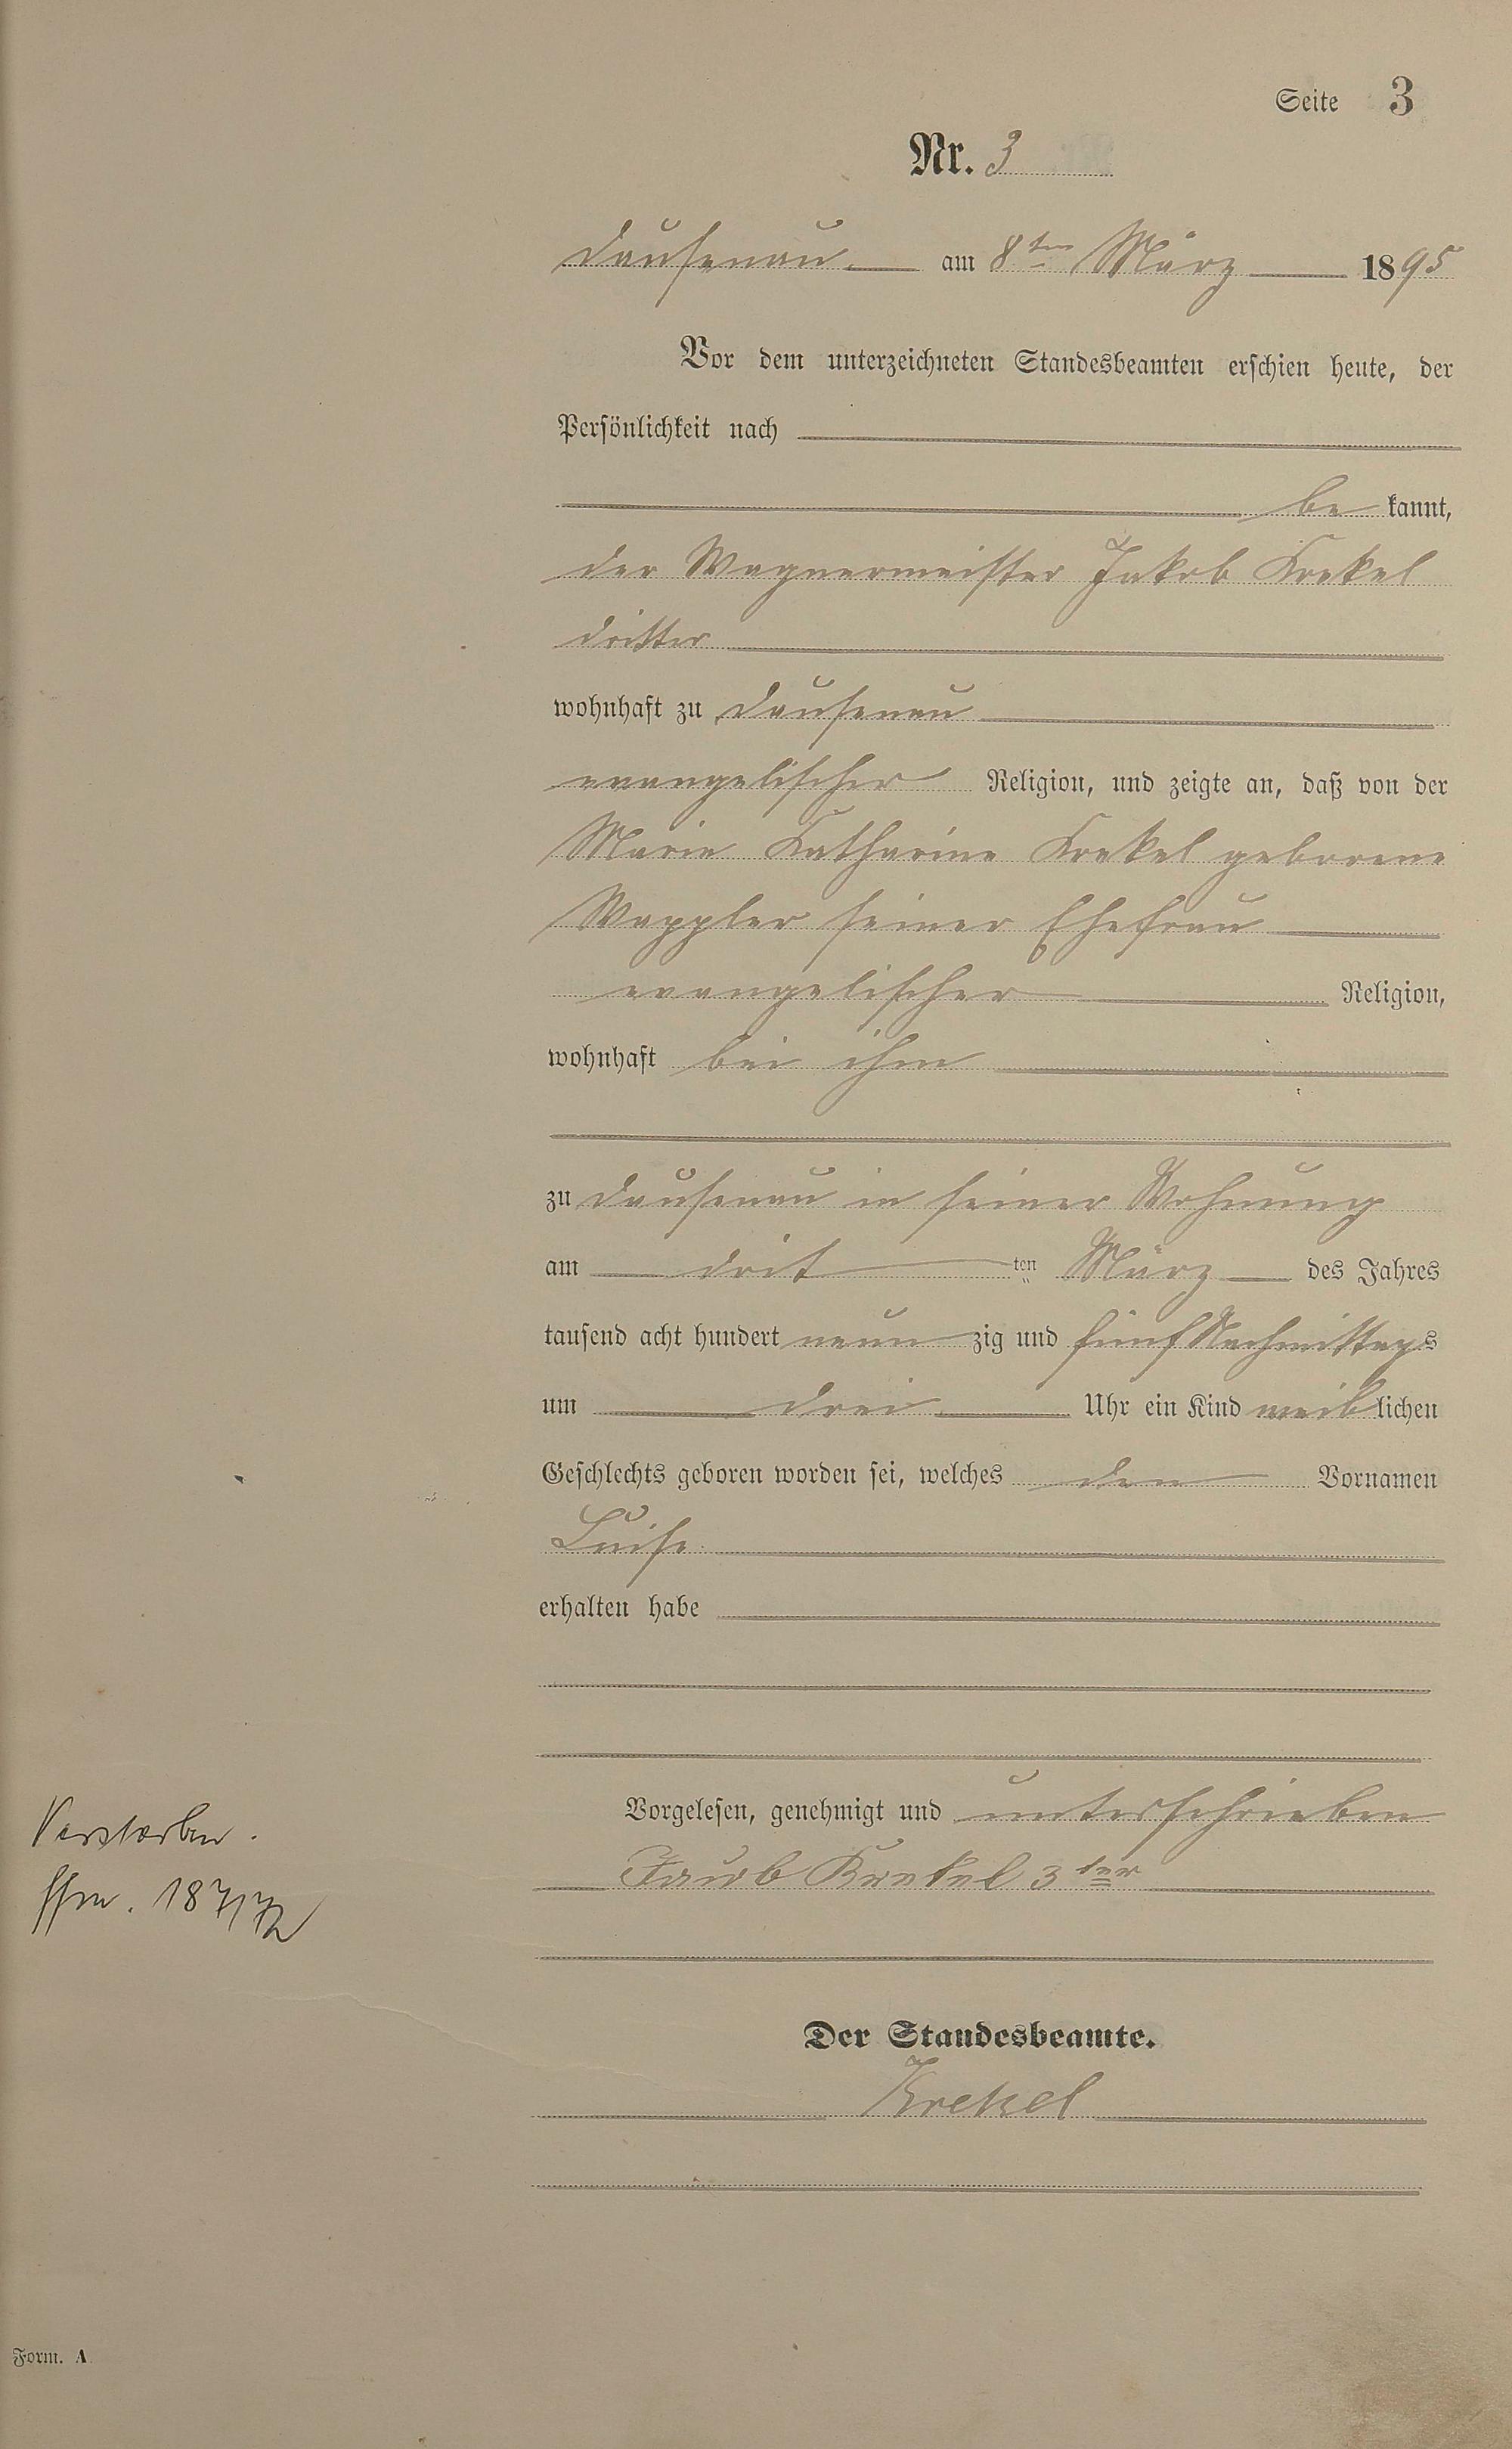 Seite 3
Nr. 3
Dausenau am 8ten März 1895
Vor dem unterzeichneten Standesbeamten erschien heute, der
Persönlichkeit nach
be kannt,
der Wagnermeister Jakob Krekel
dritter
wohnhaft zu Dausenau
evangelischer Religion, und zeigte an, daß von der
Marie Katharine Krekel geborene
Wappler seiner Ehefrau
evangelischer Religion,
wohnhaft bei ihm
zu Dausenau in seiner Wohnung
am drit ten März des Jahres
tausend acht hundert neun zig und fünf Nachmittags
um drei Uhr ein Kind weiblichen
Geschlechts geboren worden sei, welches den Vornamen
Luise
erhalten habe
Vorgelesen, genehmigt und unterschrieben
Jacob Krekel 3ter
Verstorben.
Ffm. 187/72
Der Standesbeamte.
Krekel
Form. A.